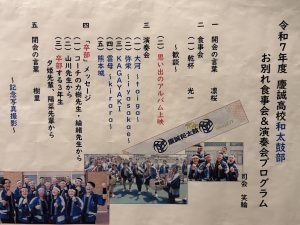 令和7年度 慶誠高校和太鼓部
お別れ食事会&演奏会プログラム
司会 笑輪
一 開会の言葉 凛桜
二 食事会
(一)乾杯 光一
~歓談~
(二)思い出のアルバム上映
三 演奏会
(一)大河 ~taiga~
(二)弥栄 ~iyasakae~
(三)KAGAYAKI
(四)雲母 ~kirara~
(五)熊本城
四 「卒部」メッセージ
(一)コーチの力樹先生・絵緒先生から
(二)山川先生から
(三)卒部する3年生
夕姫先輩、陽菜先輩から
五 閉会の言葉 樹里
~記念写真撮影~
慶誠和太鼓